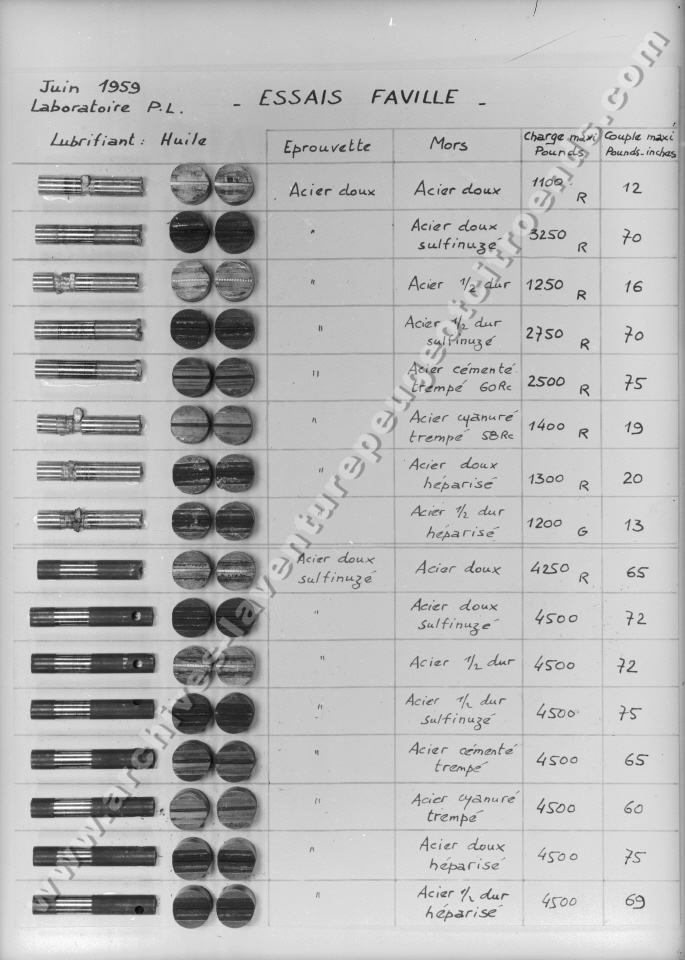 Juin 1959
Laboratoire P.L.
- ESSAIS FAVILLE -
Lubrifiant : Huile
Eprouvette Mors Charge maxi Pounds Couple maxi Pounds-inches
Acier doux Acier doux 1100 R 12
" Acier doux sulfinuzé 3250 R 70
" Acier 1/2 dur 1250 R 16
" Acier 1/2 dur sulfinuzé 2750 R 70
" Acier cémenté trempé 60Rc 2500 R 75
" Acier cyanuré trempé 58Rc 1400 R 19
" Acier doux héparisé 1300 R 20
" Acier 1/2 dur héparisé 1200 G 13
Acier doux sulfinuzé Acier doux 4250 R 65
" Acier doux sulfinuzé 4500 72
" Acier 1/2 dur 4500 72
" Acier 1/2 dur sulfinuzé 4500 75
" Acier cémenté trempé 4500 65
" Acier cyanuré trempé 4500 60
" Acier doux héparisé 4500 75
" Acier 1/2 dur héparisé 4500 69
www.archives.laventurepeugeotcitroends.com